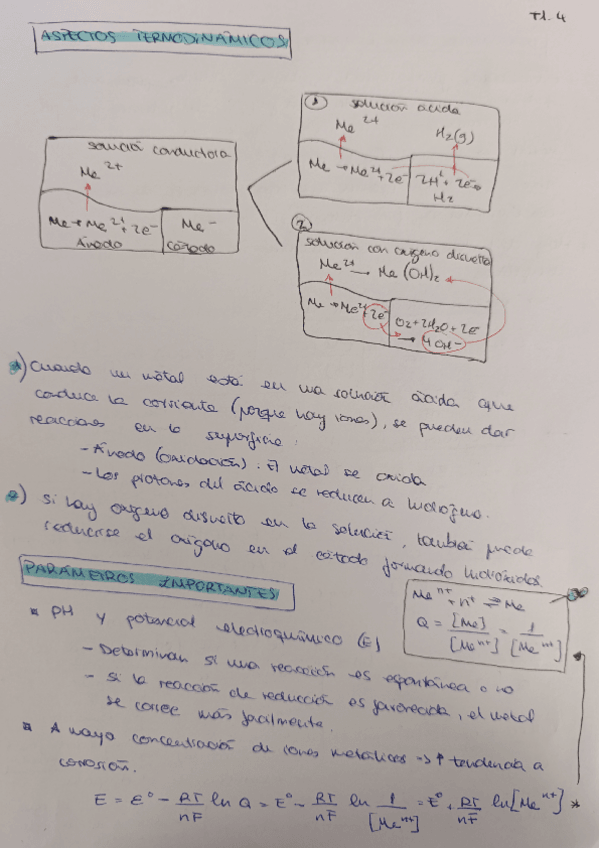 T1. 4
ASPECTOS TERMODINÁMICOS
solució conductora
Me 2+
Me → Me 2+ + 2e-
Ánodo
Me -
Cátodo
1
solución ácida
Me 2+
H2(g)
Me → Me2+ + 2e-
2H+ + 2e- →
H2
2
solución con oxígeno disuelto
Me 2+ → Me (OH)2
Me → Me2+ + 2e-
O2 + 2H2O + 2e
→ 4OH-
1) Cuando un metal está en una solución ácida que
conduce la corriente (porque hay iones), se pueden dar
reacciones en la superficie:
- Ánodo (oxidación): El metal se oxida
- Los protones del ácido se reducen a hidrógeno.
2) Si hay oxígeno disuelto en la solución, también puede
reducirse el oxígeno en el cátodo formando hidróxidos.
PARÁMETROS IMPORTANTES
PH y potencial electroquímico (E)
- Determinan si una reacción es espontánea o no
- Si la reacción de reducción es favorecida, el metal
se corroe más fácilmente.
Me n+ + n+ ⇌ Me
Q = [Me] / [Me n+] = 1 / [Me n+]
A mayo concentración de iones metálicos => ↑ tendencia a
corosión.
E = E° - RT/nF ln Q = E° - RT/nF ln 1/[Me n+] = E° + RT/nF ln [Me n+] *